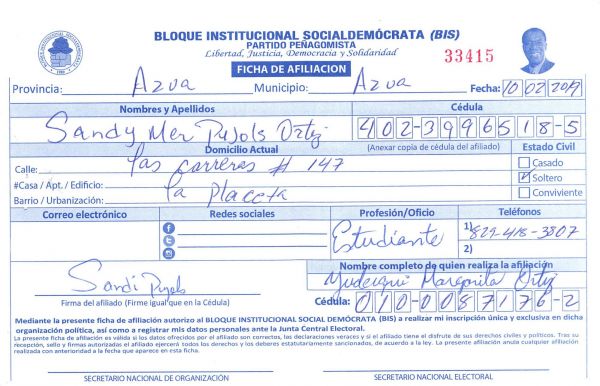 BLOQUE INSTITUCIONAL SOCIALDEMÓCRATA (BIS)
PARTIDO PEÑAGOMISTA
Libertad, Justicia, Democracia y Solidaridad
33415
FICHA DE AFILIACION
Provincia: Azua Municipio: Azua Fecha: 10/02/2019
Nombres y Apellidos Cédula
Sandy Mer Pujols Ortiz 402-3996518-5
Domicilio Actual (Anexar copia de cédula del afiliado) Estado Civil
Calle: las carreras # 147 Casado
#Casa / Apt. / Edificio: Soltero
Barrio / Urbanización: la Placeta Conviviente
Correo electrónico Redes sociales Profesión/Oficio Teléfonos
Estudiante 1) 829-418-3807
2)
Nombre completo de quien realiza la afiliación
Sandi Pujols Margarita Ortiz
Firma del afiliado (Firme igual que en la Cédula) Cédula: 010-0087176-2
Mediante la presente ficha de afiliación autorizo al BLOQUE INSTITUCIONAL SOCIAL DEMÓCRATA (BIS) a realizar mi inscripción única y exclusiva en dicha
organización política, así como a registrar mis datos personales ante la Junta Central Electoral.
La presente ficha de afiliación es válida si los datos ofrecidos por el afiliado son correctos, las declaraciones veraces y si el afiliado tiene el disfrute de sus derechos civiles y políticos. Tras su
recepción, sello y firmas autorizadas el afiliado ejercerá todos los derechos y los deberes estatutariamente sancionados, de acuerdo a la ley. La presente afiliación anula cualquier afiliación
realizada con anterioridad a la fecha que aparece en esta ficha.
SECRETARIO NACIONAL DE ORGANIZACIÓN SECRETARIO NACIONAL ELECTORAL